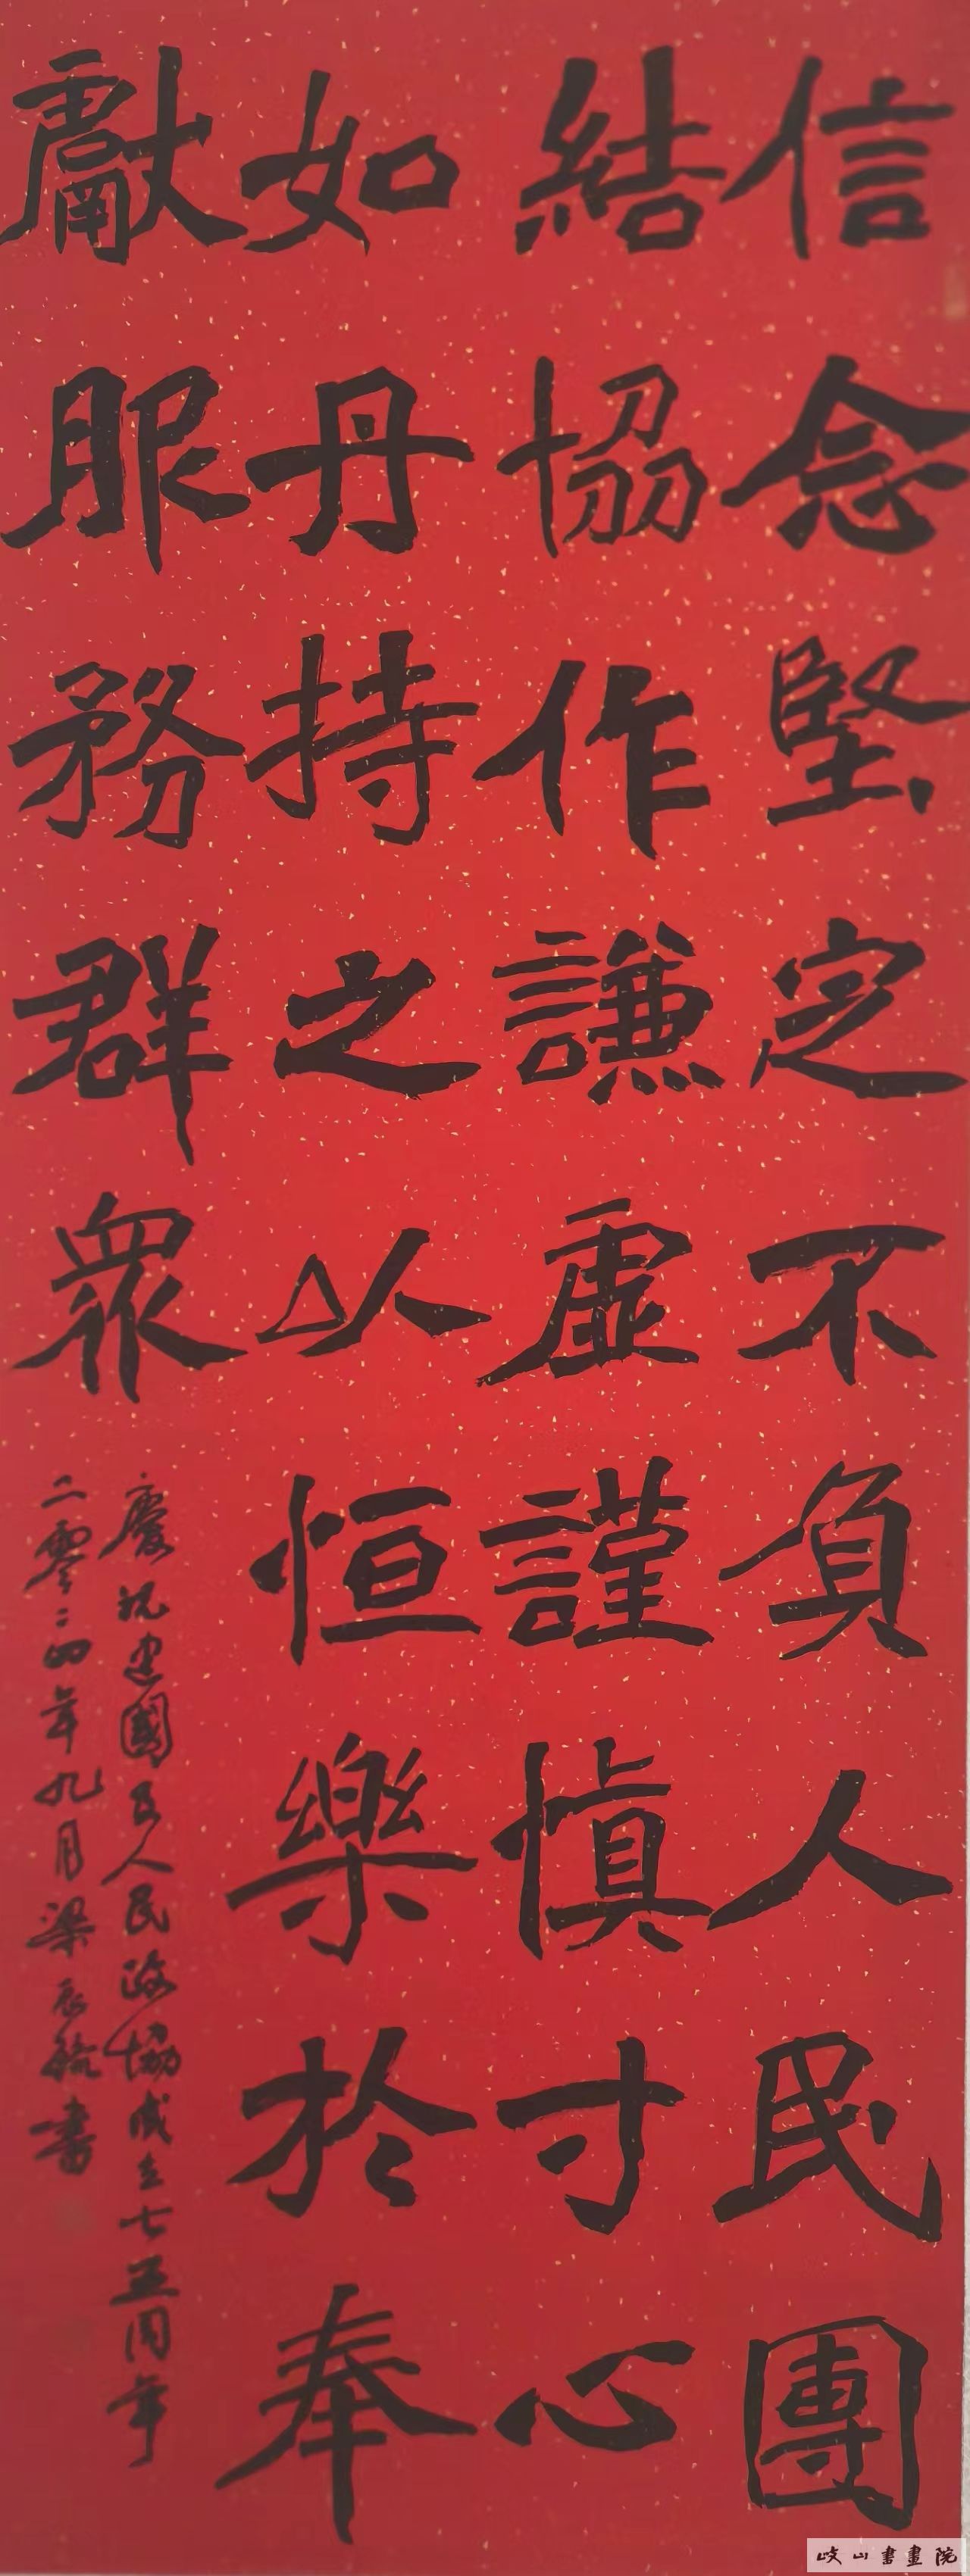 信念堅定不負人民團
結協作謙虛謹慎寸心
如丹持之以恒樂於奉
獻服務群眾
慶祝建國及人民政協成立七五周年
二零二四年九月梁辰書
岐山書畫院